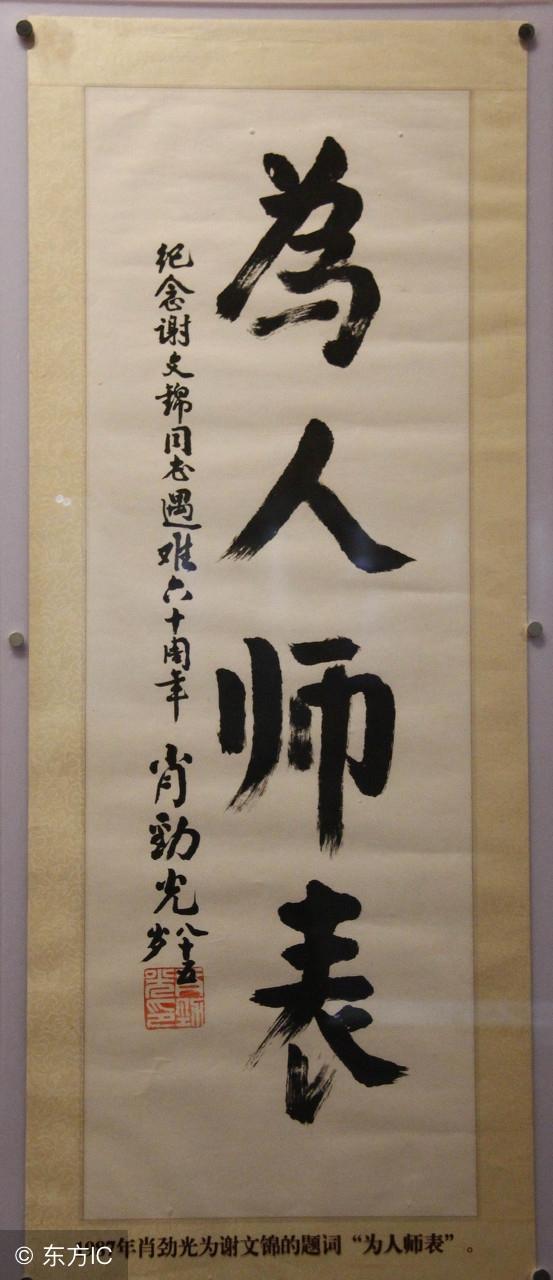 為人师表
纪念谢文錦同志遇难六十周年
肖勁光
八十五
岁
1987年肖劲光为谢文锦的题词“为人师表”。
© 东方IC